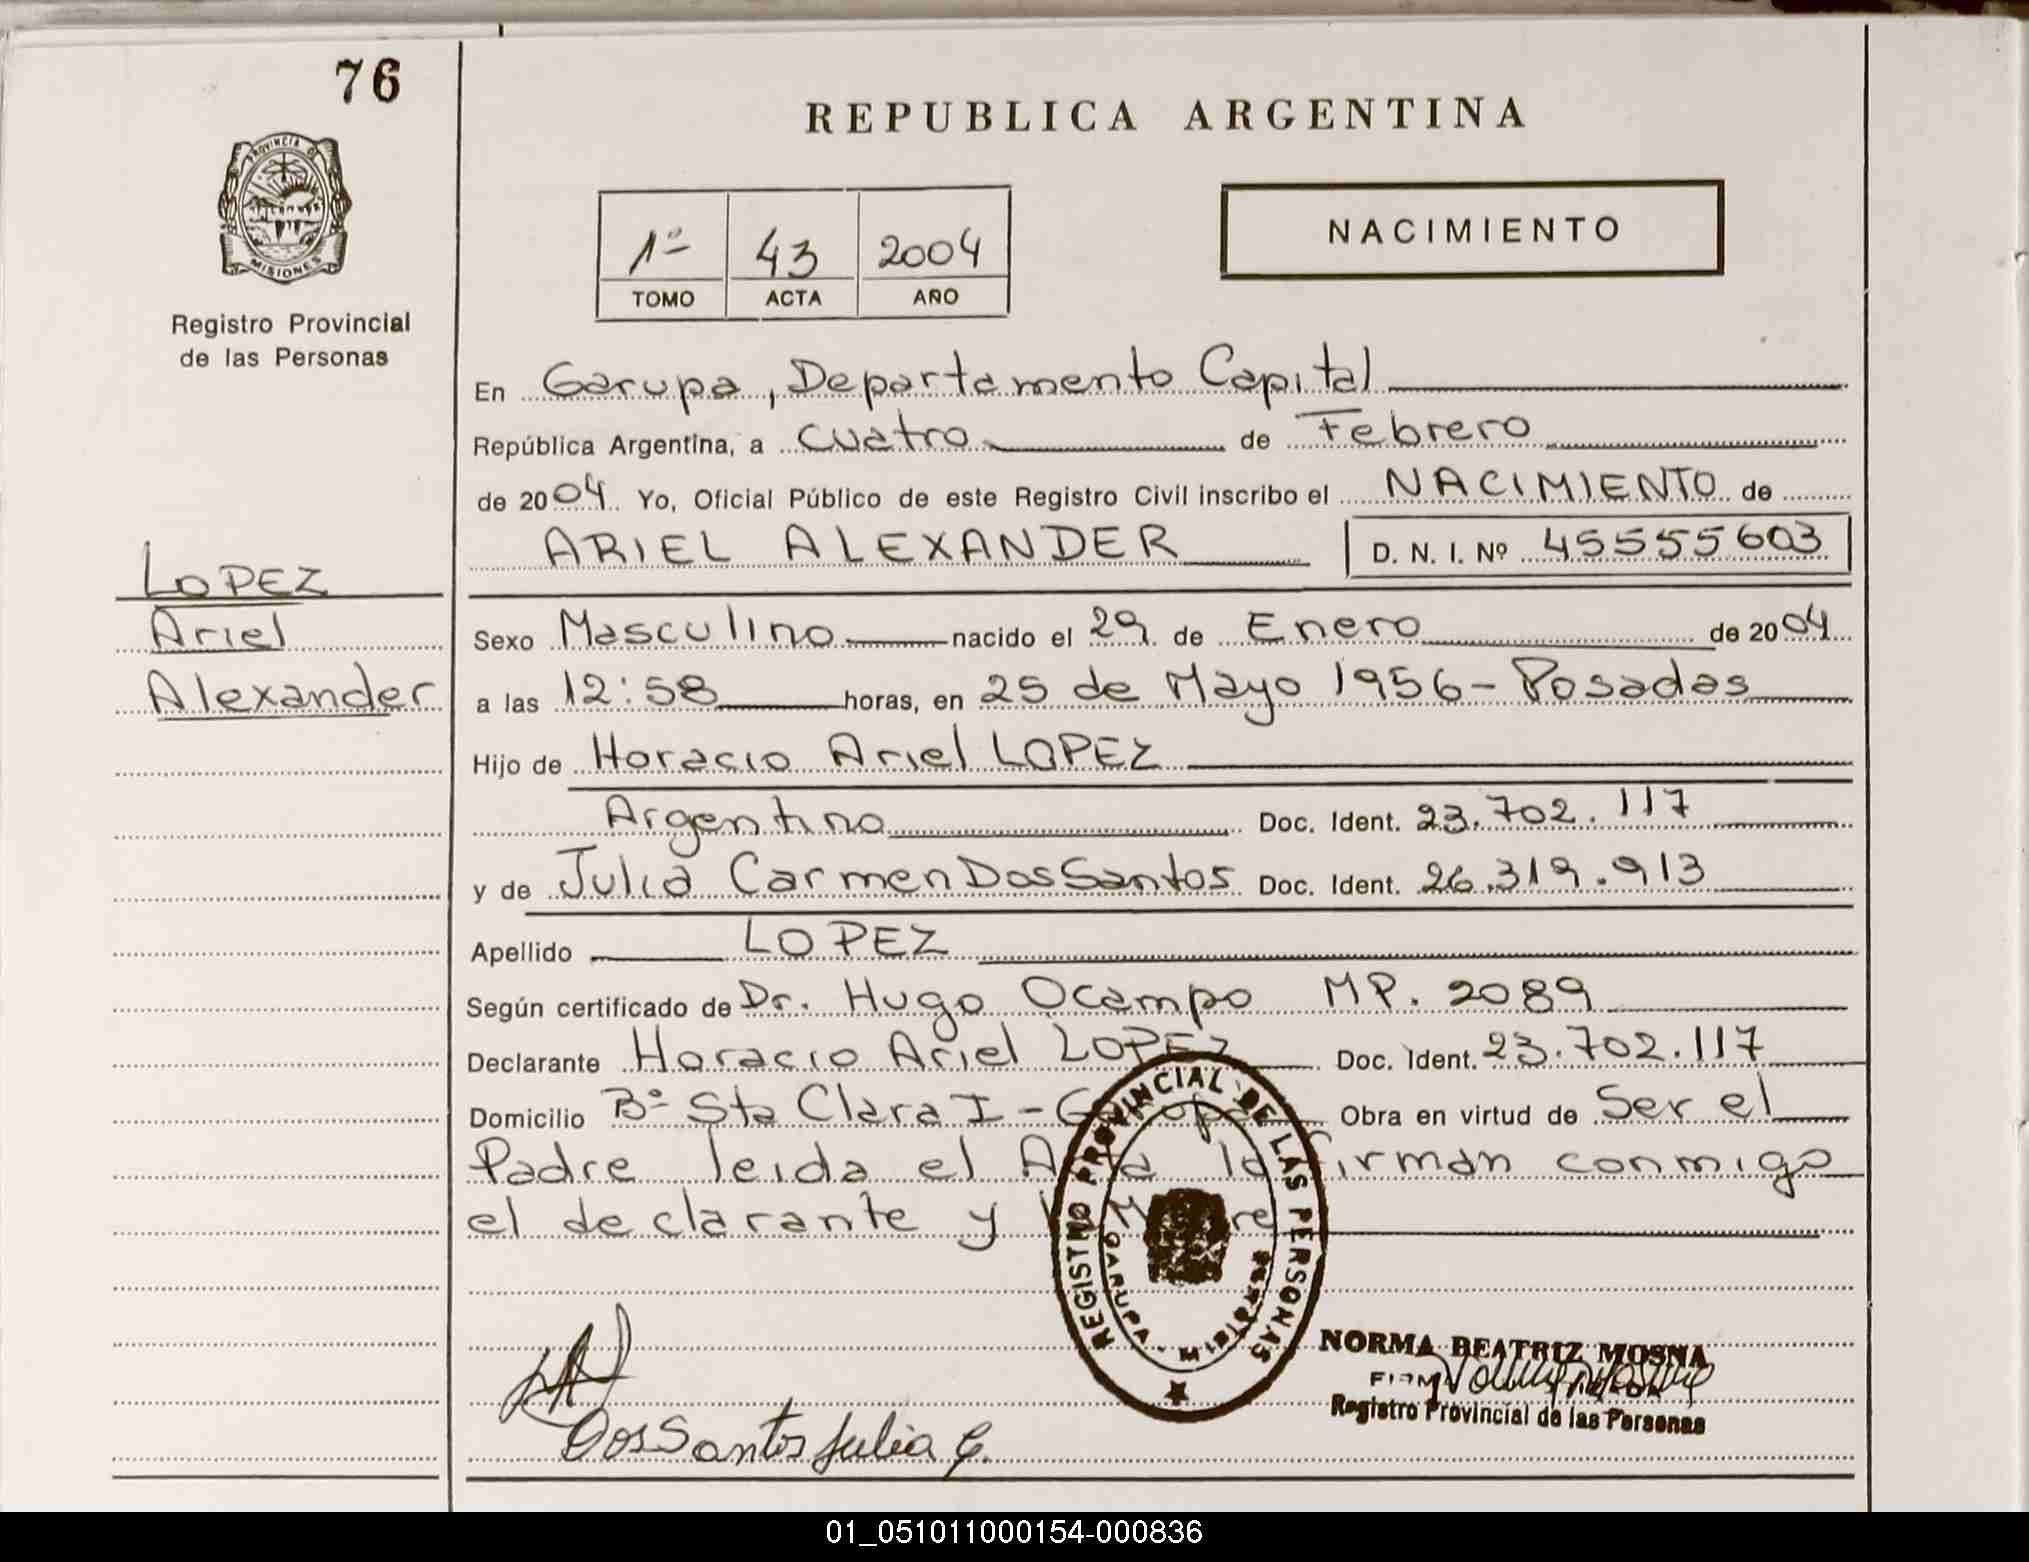 76
REPUBLICA ARGENTINA
PROVINCIA DE
MISIONES
Registro Provincial
de las Personas
1º 43 2004
TOMO ACTA AÑO
NACIMIENTO
En Garupa, Departamento Capital
República Argentina, a cuatro de Febrero
de 2004 Yo, Oficial Público de este Registro Civil inscribo el NACIMIENTO de
ARIEL ALEXANDER D. N. I. Nº 45555603
LOPEZ
Ariel
Alexander
Sexo Masculino nacido el 29 de Enero de 2004
a las 12:58 horas, en 25 de Mayo 1956 - Posadas
Hijo de Horacio Ariel LOPEZ
Argentino Doc. Ident. 23.702.117
y de Julia Carmen Dos Santos Doc. Ident. 26.319.913
Apellido LOPEZ
Según certificado de Dr. Hugo Ocampo MP. 2089
Declarante Horacio Ariel LOPEZ Doc. Ident. 23.702.117
Domicilio Bº Sta Clara I - Garupa Obra en virtud de Ser el
Padre leida el Acta la firman conmigo
el declarante y
REGISTRO PROVINCIAL DE LAS PERSONAS
GARUPA
NORMA BEATRIZ MOSNA
Registro Provincial de las Personas
Dos Santos Julia C.
01_051011000154-000836